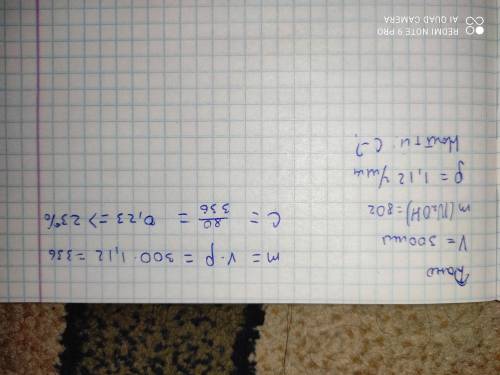 Дано
V = 300мл
m(NaOH)=80г
ρ = 1,12 г/мл
Найти: C-?
m = V·ρ = 300·1,12 = 336
C = 80/336 = 0,23 => 23%
REDMI NOTE 9 PRO
AI QUAD CAMERA